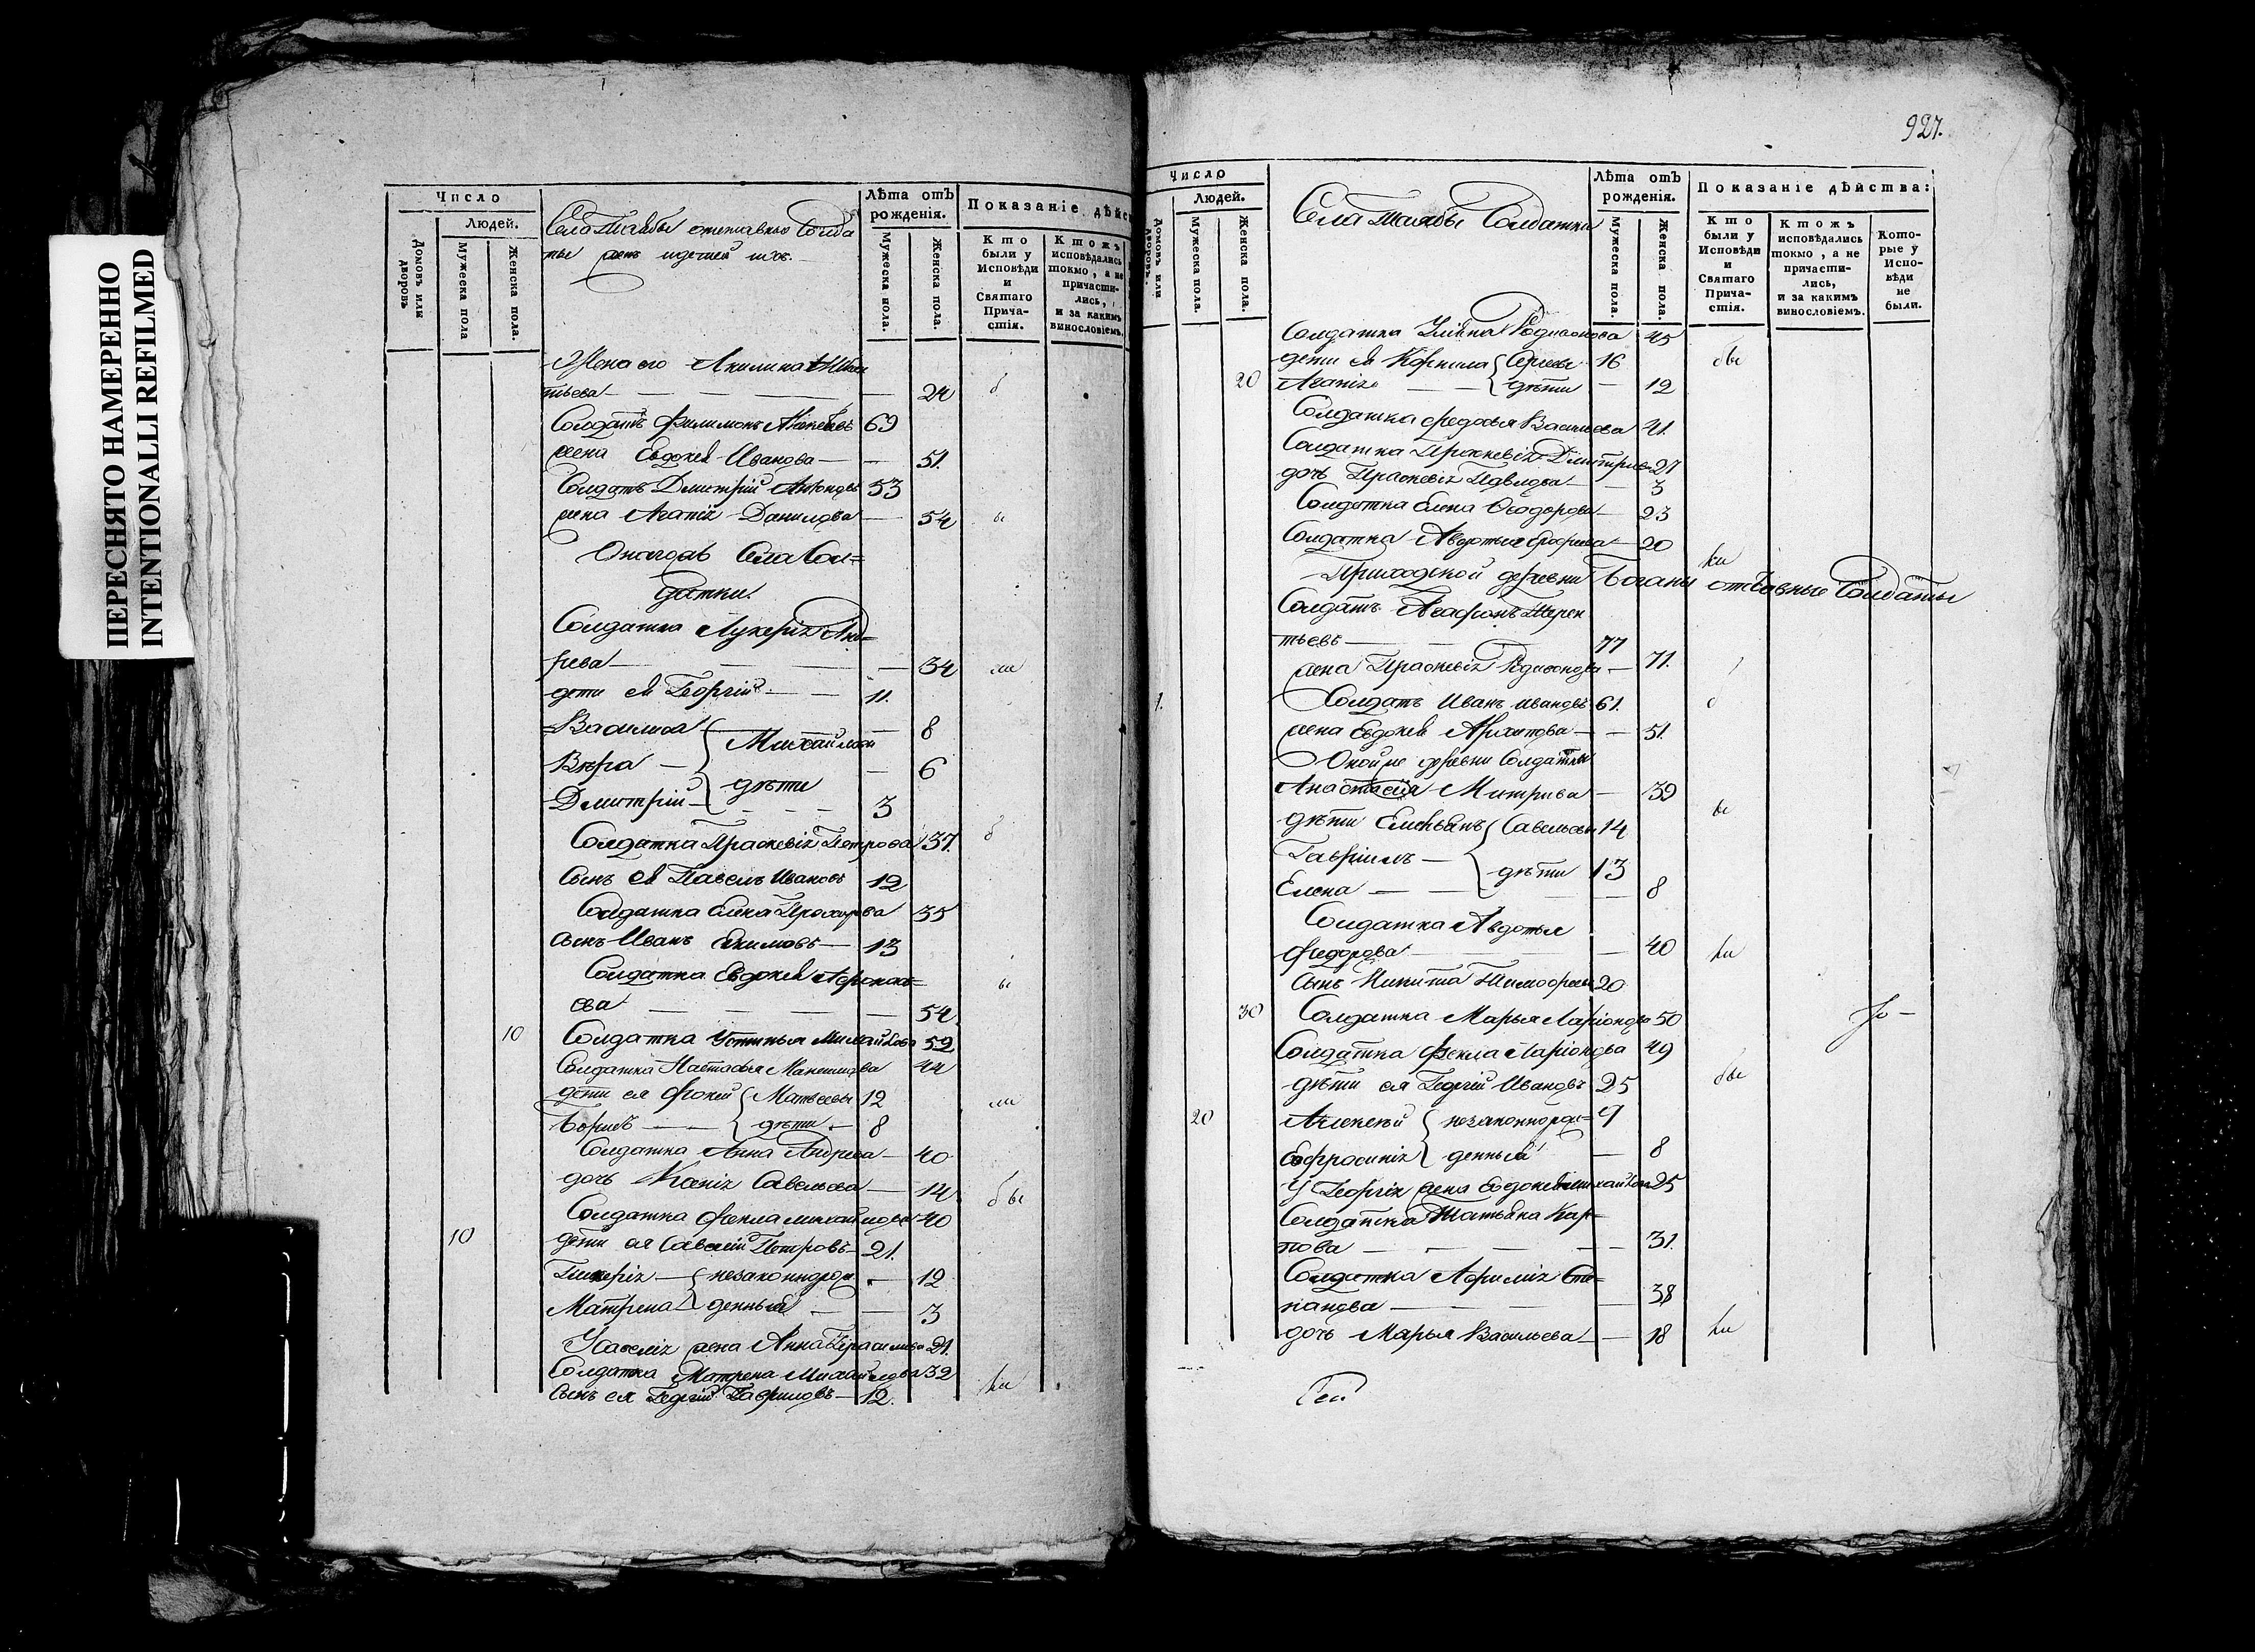 ПЕРЕСНЯТО НАМЕРЕННО
INTENTIONALLI REFILMED
Число
Людей.
Домовъ или дворовъ
Мужеска пола
Женска пола.
Села
Лѣта отъ рожденія.
Мужеска пола.
Женска пола.
Показаніе дѣйс
Кто были у Исповѣди и Святаго Прича-стія.
Ктожъ исповѣдались токмо, а не причасти-лись, и за какимъ винословіемъ.
Жена его Акилина
тьева — 24
Солдатъ Филимонъ 69
жена Евдокея Иванова — 51.
Солдатъ Дмитрій 53
жена Агапія Данилова — 54
Онагожъ Села Сол=
датки.
Солдатка Лукерія Анд=
рева — 34
дети ея Георгій — 11.
Василиса — 8
Михайловы
Вѣра — 6
дѣти
Дмитрій — 3
Солдатка Праскевія Петрова 37.
Сынъ ея Павелъ Ивановъ 12
Солдатка Елена Прохорова 35
сынъ Иванъ Екимовъ — 13
Солдатка Евдокея Афонась=
ева — 54
10 Солдатка Устинья Михайлова 52
Солдатка Настасья 44
дети ея Фокей Матвеевы 12
Борисъ — дѣти — 8
Солдатка Анна Андрева — 40
дочь Ксенія Савельева — 14
Солдатка Фекла Михайлова 40
10 дети ея Савелій Петровъ — 21.
Гликерія — незаконнорож — 12
Матрена денныя — 3
У Савелія жена Анна Герасимова 21.
Солдатка Матрена Михайлова 32
Сынъ ея Георгій Гавриловъ — 12.
927.
Число
Людей.
Домовъ или дворовъ.
Мужеска пола.
Женска пола.
Села Солдатки
Лѣта отъ рожденія.
Мужеска пола.
Женска пола.
Показаніе дѣйства:
Кто были у Исповѣди и Святаго Прича-стія.
Ктожъ исповѣдались токмо, а не причасти-лись, и за какимъ винословіемъ.
Кото-рые у Испо-вѣди не были.
Солдатка Улияна Родионова 45
дети ея Корнила Сергевы 16 бы
20 Агапія — дѣти — 12
Солдатка Федосья Васильева 41.
Солдатка Праскевія Дмитрива 27
дочь Праскевія Павлова — 3
Солдатка Елена Феодорова — 23
Солдатка Авдотья 20
Приходской деревни отставные Солдаты
Солдатъ Агафонъ Терен
тьевъ — 77
жена Праскевія Родионова — 71.
1. Солдатъ Иванъ Ивановъ 61.
жена Евдокея Архипова — 51.
Оной же деревни Солдатки
Анастасия Митрива — 39
дѣти Емельянъ Савельевы 14
Гавріилъ — дѣти 13
Елена — 8
Солдатка Авдотья
Федорова — 40
Сынъ Никита Тимофеевъ 20
30 Солдатка Марья Ларіонова 50
Солдатка Фекла Ларіонова 49
дѣти ея Георгій Ивановъ 25
20 Алексей незаконнорож= 9
Евфросинія денныя — 8
У Георгія жена Евдокея Михайлова 25
Солдатка Татьяна Кар=
пова — 31.
Солдатка Афимія Сте=
панова — 38
дочь Марья Васильева — 18